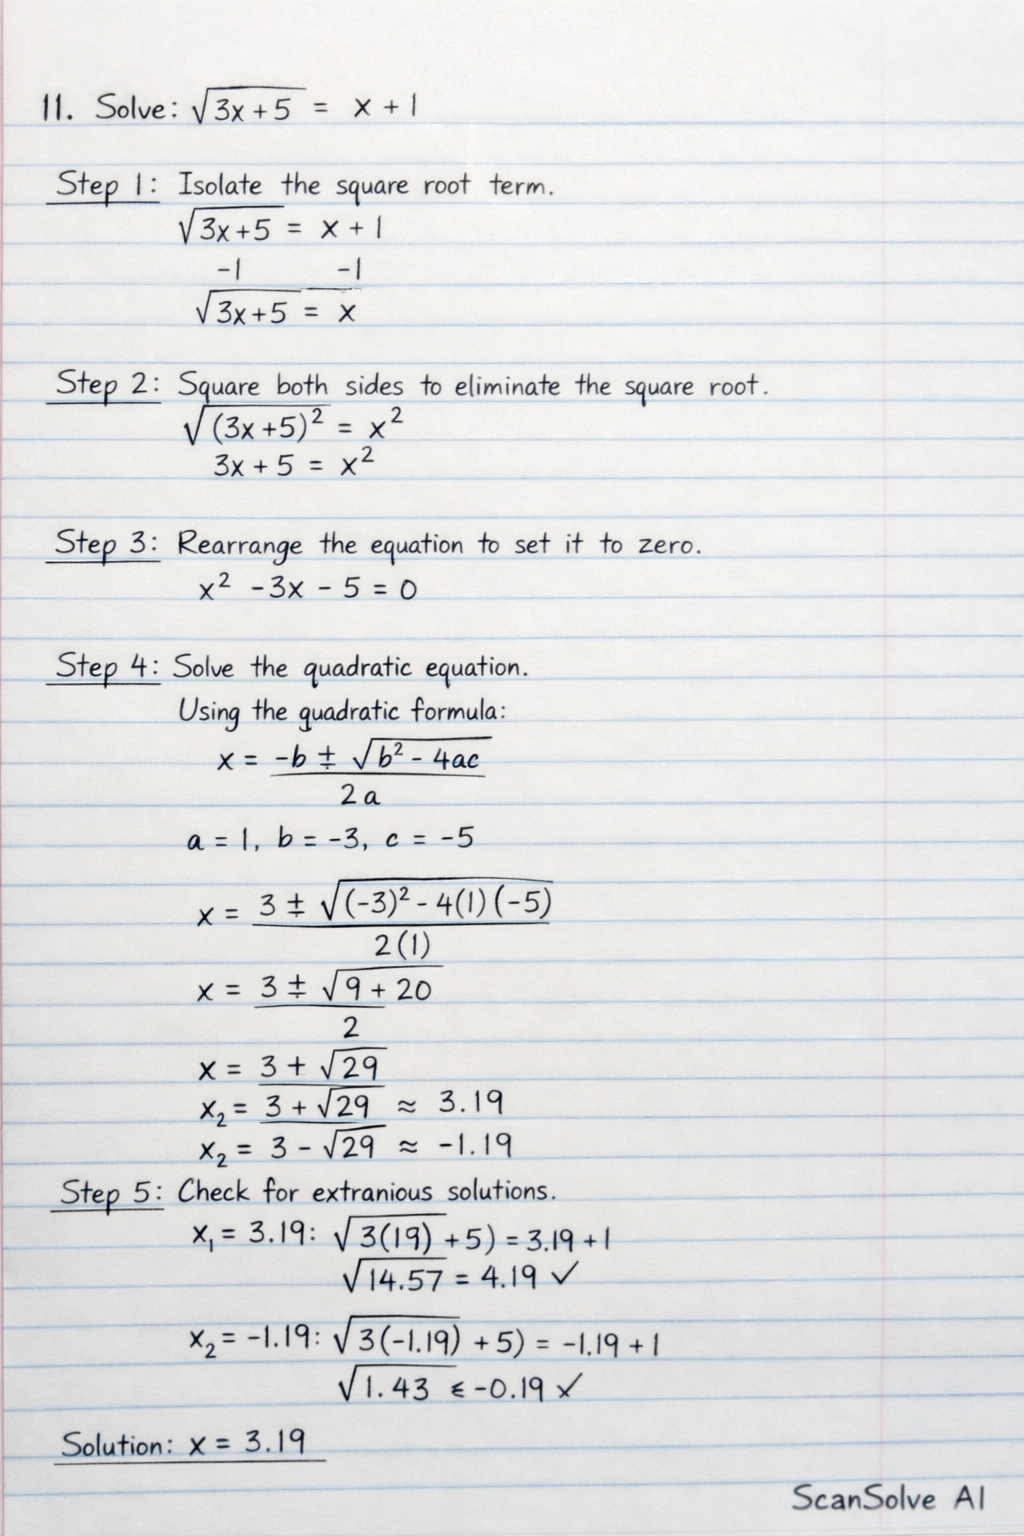 11. Solve: √3x + 5 = x + 1
Step 1: Isolate the square root term.
√3x+5 = x + 1
-1 -1
√3x+5 = x
Step 2: Square both sides to eliminate the square root.
√(3x+5)² = x²
3x + 5 = x²
Step 3: Rearrange the equation to set it to zero.
x² -3x - 5 = 0
Step 4: Solve the quadratic equation.
Using the quadratic formula:
x = -b ± √b² - 4ac
2a
a = 1, b = -3, c = -5
x = 3 ± √(-3)² - 4(1)(-5)
2(1)
x = 3 ± √9 + 20
2
x = 3 + √29
x₂ = 3 + √29 ≈ 3.19
x₂ = 3 - √29 ≈ -1.19
Step 5: Check for extranious solutions.
x₁ = 3.19: √3(19) + 5) = 3.19 + 1
√14.57 = 4.19 ✓
x₂ = -1.19: √3(-1.19) + 5) = -1.19 + 1
√1.43 ≠ -0.19 ✗
Solution: x = 3.19
ScanSolve AI